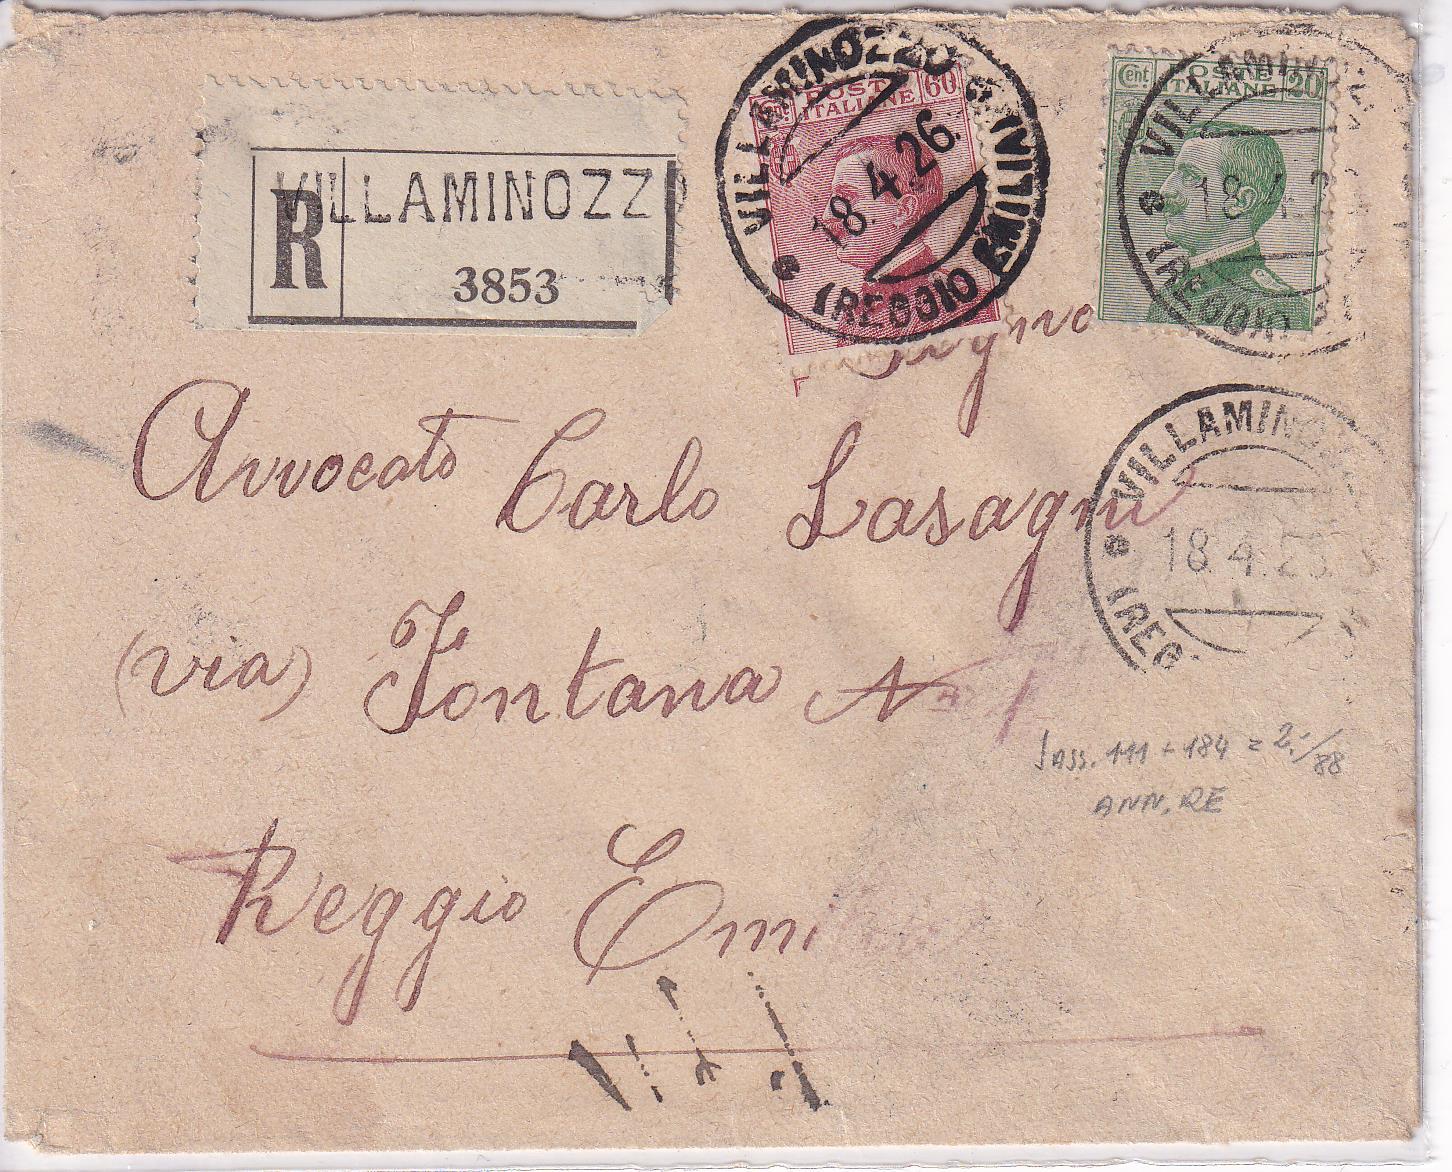 VILLAMINOZZ
R
3853
Cent. POSTE ITALIANE 60
VILLAMINOZZO
(REGGIO EMILIA)
18.4.26
Cent. POSTE ITALIANE 20
VILLAMINOZZO
(REGGIO
18.4.2
Avvocato Carlo Lasagni
VILLAMINO
18.4.26
(REG
(via) Fontana N 1
Sass. 111 + 184 = 2.-/88
ANN. RE
Reggio Emilia